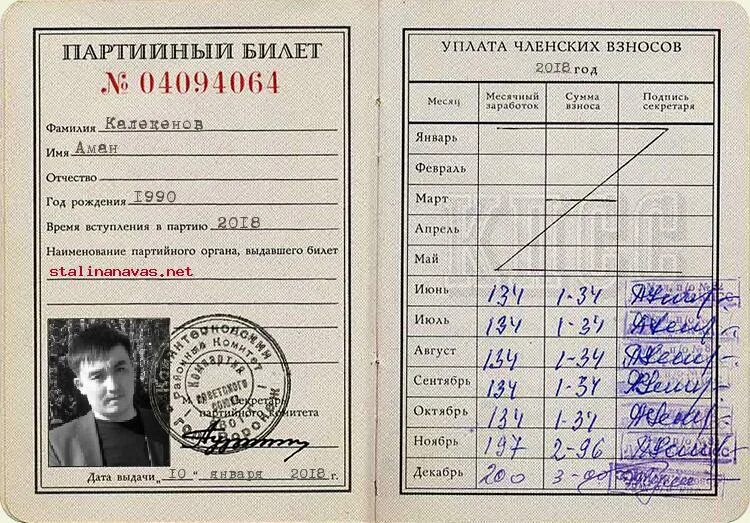 ПАРТИЙНЫЙ БИЛЕТ
№ 04094064
Фамилия Калекенов
Имя Аман
Отчество
Год рождения 1990
Время вступления в партию 2018
Наименование партийного органа, выдавшего билет
stalinanavas.net
Районный Комитет
Компартия
Советского
Союза
М Секретарь
партийного комитета
Дата выдачи „10" января 2018 г.
УПЛАТА ЧЛЕНСКИХ ВЗНОСОВ
2018 год
Месяц Месячный заработок Сумма взноса Подпись секретаря
Январь
Февраль
Март
Апрель
Май
КПСС
Июнь 134 1-34
Июль 134 1-34
Август 134 1-34
Сентябрь 134 1-34
Октябрь 134 1-34
Ноябрь 197 2-96
Декабрь 200 3-00